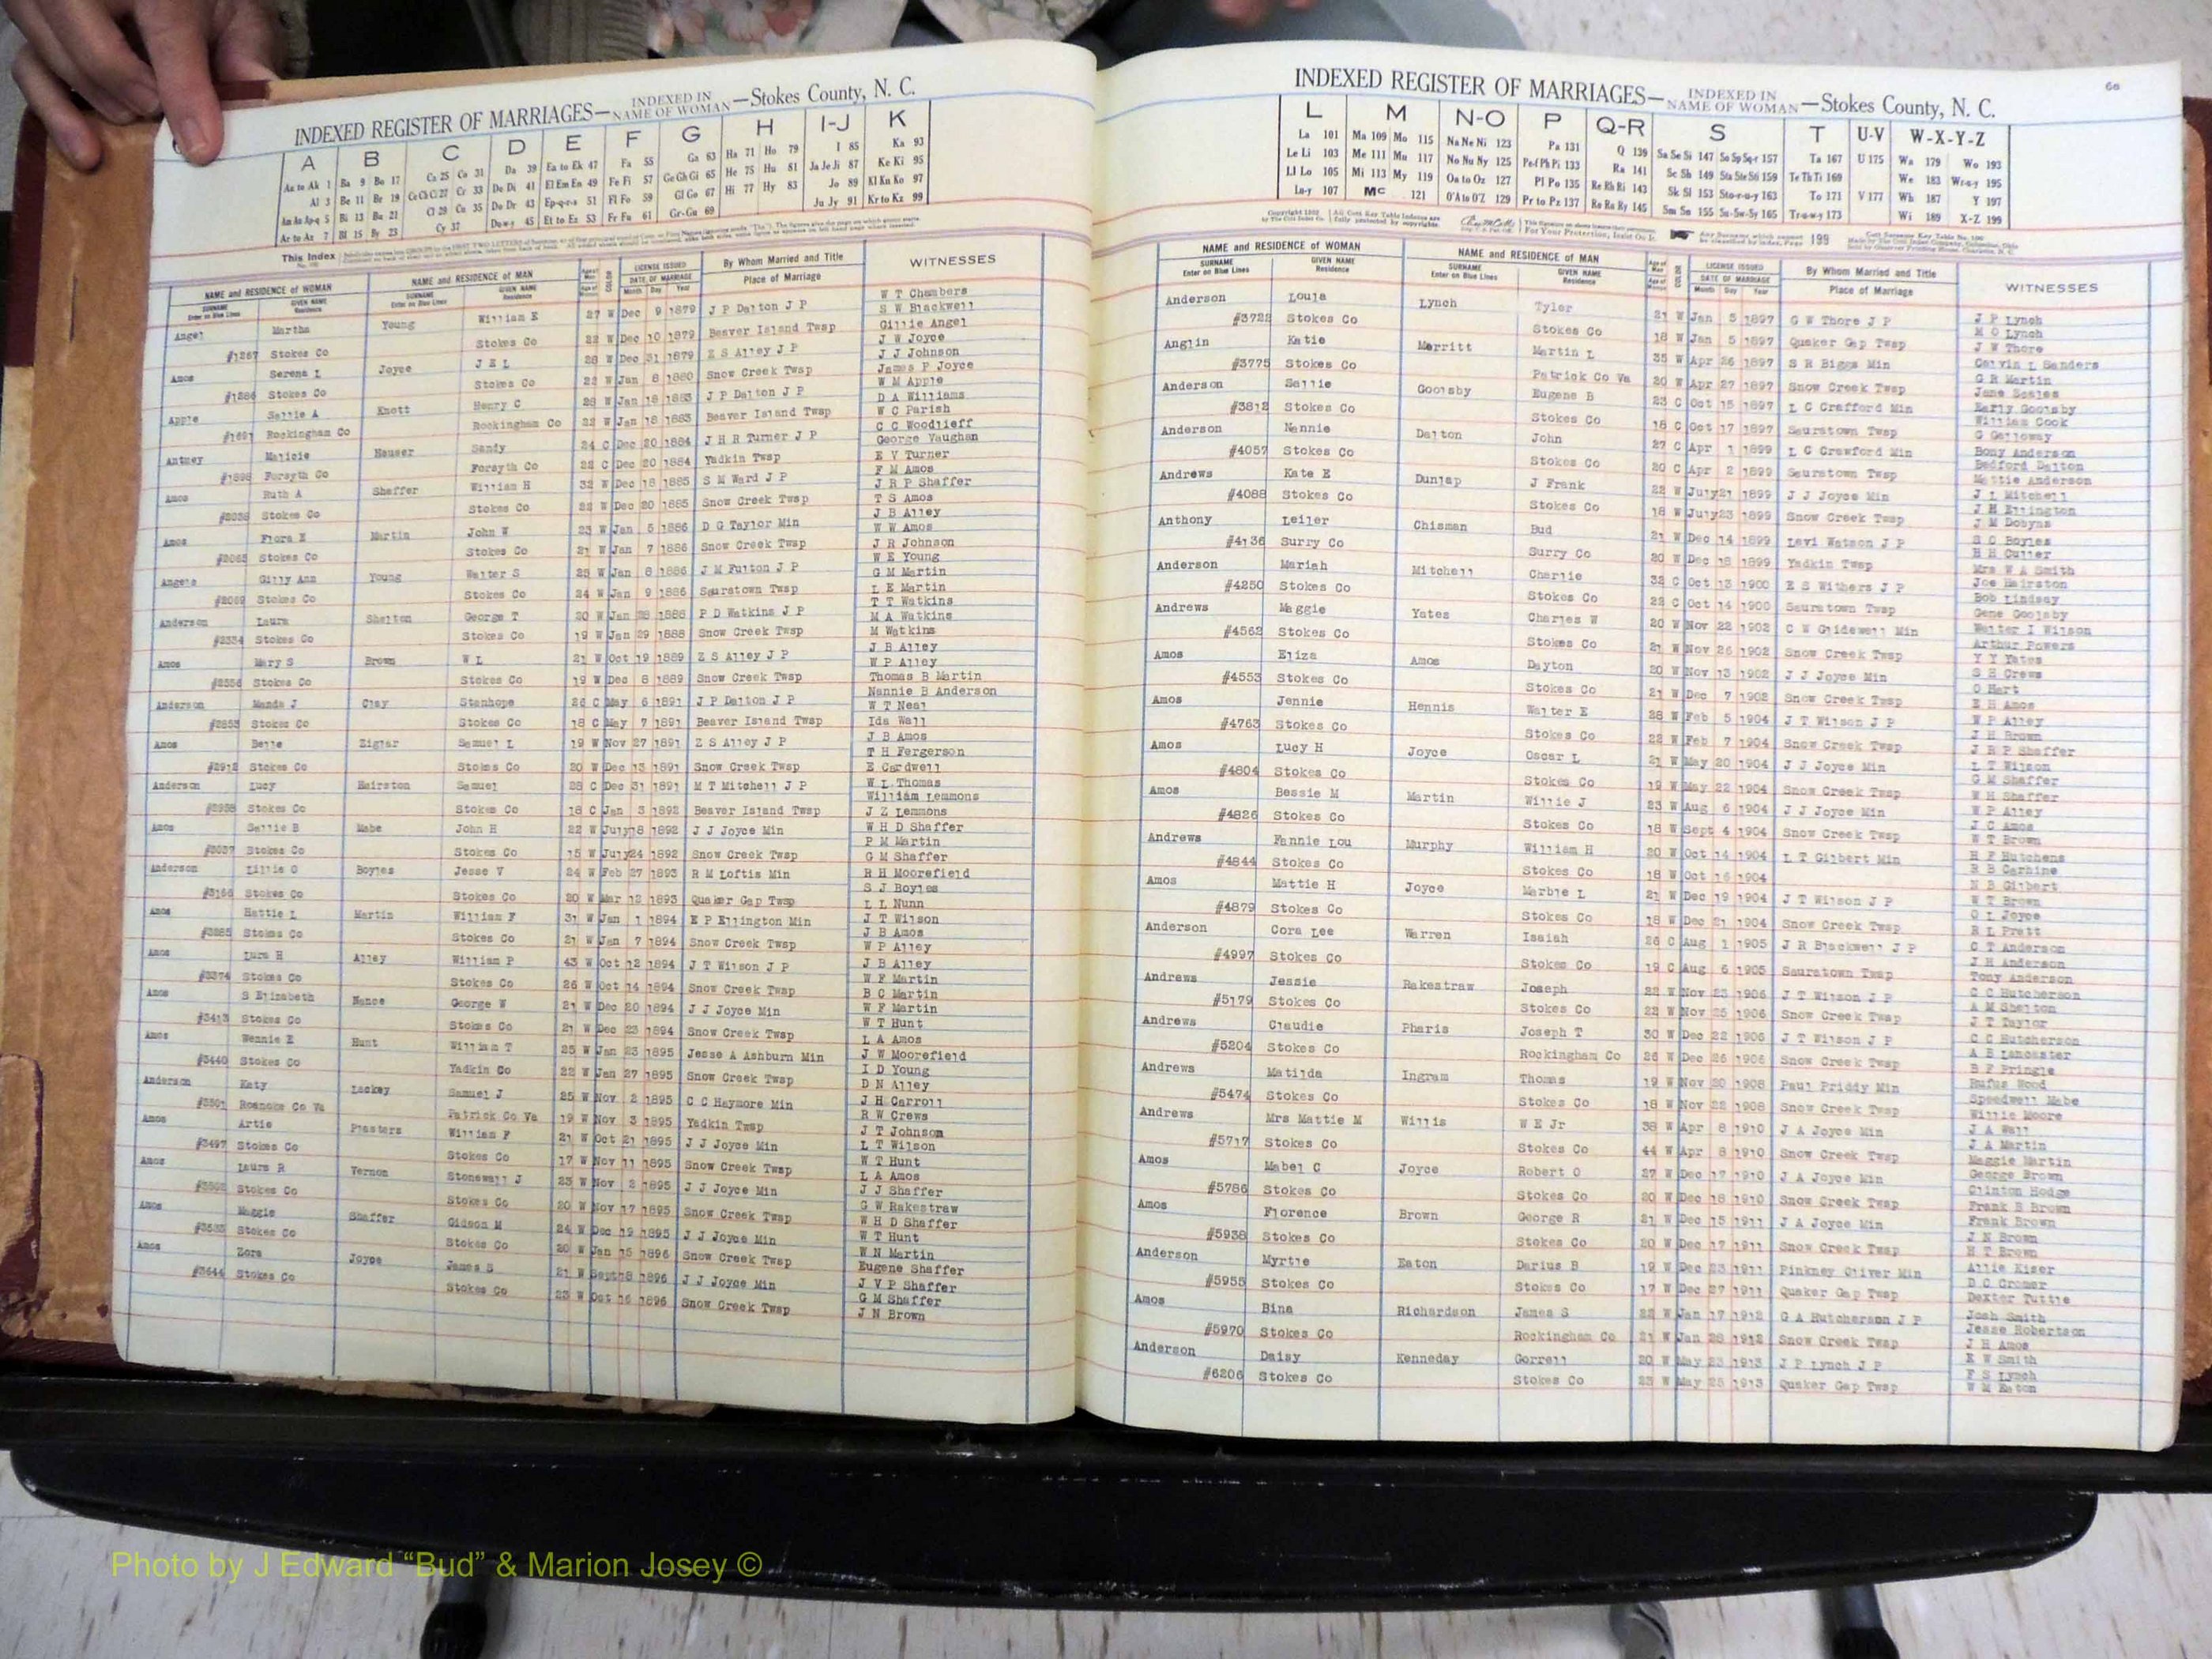 INDEXED REGISTER OF MARRIAGES— INDEXED IN NAME OF WOMAN —Stokes County, N. C.
A B C D E F G H I-J K
Aa to Ak 1 Ba 9 Bo 17 Ca 25 Co 31 Da 39 Ea to Ek 47 Fa 55 Ga 63 Ha 71 Ho 79 I 85 Ka 93
Al 3 Be 11 Br 19 Ce Ch Ci 27 Cr 33 De Di 41 El Em En 49 Fe Fi 57 Ge Gh Gi 65 He 75 Hu 81 Ja Je Ji 87 Ke Ki 95
Am An Ap-q 5 Bi 13 Bu 21 Cl 29 Cu 35 Do Dr 43 Ep-q-r-s 51 Fl Fo 59 Gl Go 67 Hi 77 Hy 83 Jo 89 Kl Kn Ko 97
Ar to Az 7 Bl 15 By 23 Cy 37 Du-w-y 45 Et to Ez 53 Fr Fu 61 Gr-Gu 69 Ju Jy 91 Kr to Kz 99
This Index
NAME and RESIDENCE of WOMAN NAME and RESIDENCE of MAN LICENSE ISSUED By Whom Married and Title WITNESSES
SURNAME Enter on Blue Lines GIVEN NAME Residence SURNAME Enter on Blue Lines GIVEN NAME Residence DATE OF MARRIAGE Month Day Year Place of Marriage
W T Chambers
Angel Martha Young William E 27 W Dec 9 1879 J P Dalton J P S W Blackwell
Gillie Angel
#1267 Stokes Co Stokes Co 22 W Dec 10 1879 Beaver Island Twsp J W Joyce
Amos Serena L Joyce J E L 28 W Dec 31 1879 Z S Alley J P J J Johnson
James P Joyce
#1286 Stokes Co Stokes Co 22 W Jan 8 1880 Snow Creek Twsp W M Apple
Apple Sallie A Knott Henry C 28 W Jan 18 1883 J P Dalton J P D A Williams
W C Parish
#1691 Rockingham Co Rockingham Co 22 W Jan 18 1883 Beaver Island Twsp C C Woodlieff
Antney Malicie Hauser Sandy 24 C Dec 20 1884 J H R Turner J P George Vaughan
E V Turner
#1898 Forsyth Co Forsyth Co 22 C Dec 20 1884 Yadkin Twsp F M Amos
Amos Ruth A Shaffer William H 32 W Dec 18 1885 S M Ward J P J R P Shaffer
T S Amos
Stokes Co Stokes Co 22 W Dec 20 1885 Snow Creek Twsp J B Alley
Amos Flora E Martin John W 23 W Jan 5 1886 D G Taylor Min W W Amos
J R Johnson
#2065 Stokes Co Stokes Co 21 W Jan 7 1886 Snow Creek Twsp W E Young
Angele Gilly Ann Young Walter S 25 W Jan 8 1886 J M Fulton J P G M Martin
L E Martin
#2069 Stokes Co Stokes Co 24 W Jan 9 1886 Sauratown Twsp T T Watkins
Anderson Laura Shelton George T 20 W Jan 28 1888 P D Watkins J P M A Watkins
M Watkins
#2334 Stokes Co Stokes Co 19 W Jan 29 1888 Snow Creek Twsp J B Alley
Amos Mary S Brown W L 21 W Oct 19 1889 Z S Alley J P W P Alley
Thomas B Martin
#2556 Stokes Co Stokes Co 19 W Dec 8 1889 Snow Creek Twsp Nannie B Anderson
Anderson Manda J Clay Stanhope 26 C May 6 1891 J P Dalton J P W T Neal
Ida Wall
#2853 Stokes Co Stokes Co 18 C May 7 1891 Beaver Island Twsp J B Amos
Amos Belle Ziglar Samuel L 19 W Nov 27 1891 Z S Alley J P T H Fergerson
E Cardwell
#2912 Stokes Co Stokes Co 20 W Dec 13 1891 Snow Creek Twsp W L Thomas
Anderson Lucy Hairston Samuel 28 C Dec 31 1891 M T Mitchell J P William Lemmons
J Z Lemmons
#2958 Stokes Co Stokes Co 18 C Jan 3 1892 Beaver Island Twsp W H D Shaffer
Amos Sallie B Mabe John H 22 W July 18 1892 J J Joyce Min P M Martin
G M Shaffer
#3037 Stokes Co Stokes Co 15 W July 24 1892 Snow Creek Twsp R H Moorefield
Anderson Lillie O Boyles Jesse V 24 W Feb 27 1893 R M Loftis Min S J Boyles
L L Nunn
#3166 Stokes Co Stokes Co 20 W Mar 12 1893 Quaker Gap Twsp J T Wilson
Amos Hattie L Martin William F 31 W Jan 1 1894 E P Ellington Min J B Amos
W P Alley
#3285 Stokes Co Stokes Co 21 W Jan 7 1894 Snow Creek Twsp J B Alley
Amos Lura H Alley William P 43 W Oct 12 1894 J T Wilson J P W F Martin
B C Martin
#3374 Stokes Co Stokes Co 26 W Oct 14 1894 Snow Creek Twsp W F Martin
Amos S Elizabeth Nance George W 21 W Dec 20 1894 J J Joyce Min W T Hunt
L A Amos
#3413 Stokes Co Stokes Co 21 W Dec 23 1894 Snow Creek Twsp J W Moorefield
Amos Wennie E Hunt William T 25 W Jan 23 1895 Jesse A Ashburn Min I D Young
D N Alley
#3440 Stokes Co Yadkin Co 22 W Jan 27 1895 Snow Creek Twsp J H Carroll
Anderson Katy Lackey Samuel J 25 W Nov 2 1895 C C Haymore Min R W Crews
J T Johnson
#3501 Roanoke Co Va Patrick Co Va 19 W Nov 3 1895 Yadkin Twsp L T Wilson
Amos Artie Plasters William F 21 W Oct 21 1895 J J Joyce Min W T Hunt
L A Amos
#3497 Stokes Co Stokes Co 17 W Nov 11 1895 Snow Creek Twsp J J Shaffer
Amos Laura R Vernon Stonewall J 23 W Nov 2 1895 J J Joyce Min G W Rakestraw
W H D Shaffer
Stokes Co Stokes Co 20 W Nov 17 1895 Snow Creek Twsp W T Hunt
Amos Maggie Shaffer Gideon M 24 W Dec 19 1895 J J Joyce Min W N Martin
Eugene Shaffer
Stokes Co Stokes Co 20 W Jan 15 1896 Snow Creek Twsp J V P Shaffer
Amos Zora Joyce James S 21 W Sept 18 1896 J J Joyce Min G M Shaffer
#3644 Stokes Co Stokes Co 23 W Oct 16 1896 Snow Creek Twsp J N Brown
INDEXED REGISTER OF MARRIAGES— INDEXED IN NAME OF WOMAN —Stokes County, N. C.
L M N-O P Q-R S T U-V W-X-Y-Z
La 101 Ma 109 Mo 115 Na Ne Ni 123 Pa 131 Q 139 Sa Se Si 147 So Sp Sq-r 157 Ta 167 U 175 Wa 179 Wo 193
Le Li 103 Me 111 Mu 117 No Nu Ny 125 Pe-f Ph Pi 133 Ra 141 Sc Sh 149 Sta Ste Sti 159 Te Th Ti 169 We 183 Wr-u-y 195
Ll Lo 105 Mi 113 My 119 Oa to Oz 127 Pl Po 135 Re Rh Ri 143 Sk Sl 153 Sto-r-u-y 163 To 171 V 177 Wh 187 Y 197
Lu-y 107 Mc 121 O'A to O'Z 129 Pr to Pz 137 Ro Ru Ry 145 Sm Sn 155 Su-Sw-Sy 165 Tr-u-w-y 173 Wi 189 X-Z 199
NAME and RESIDENCE of WOMAN NAME and RESIDENCE of MAN LICENSE ISSUED By Whom Married and Title WITNESSES
SURNAME Enter on Blue Lines GIVEN NAME Residence SURNAME Enter on Blue Lines GIVEN NAME Residence DATE OF MARRIAGE Month Day Year Place of Marriage
Anderson Loula Lynch Tyler 21 W Jan 5 1897 G W Thore J P J P Lynch
M O Lynch
#3722 Stokes Co Stokes Co 18 W Jan 5 1897 Quaker Gap Twsp J W Thore
Anglin Katie Merritt Martin L 35 W Apr 26 1897 S R Biggs Min Calvin L Sanders
G R Martin
#3775 Stokes Co Patrick Co Va 20 W Apr 27 1897 Snow Creek Twsp Jane Scales
Anderson Sallie Goolsby Eugene B 23 C Oct 15 1897 L C Crafford Min Early Goolsby
William Cook
#3812 Stokes Co Stokes Co 18 C Oct 17 1897 Sauratown Twsp G Galloway
Anderson Nannie Dalton John 27 C Apr 1 1899 L C Crawford Min Bony Anderson
Bedford Dalton
#4057 Stokes Co Stokes Co 20 C Apr 2 1899 Sauratown Twsp Mattie Anderson
Andrews Kate E Dunlap J Frank 22 W July 21 1899 J J Joyce Min J L Mitchell
J H Ellington
#4088 Stokes Co Stokes Co 18 W July 23 1899 Snow Creek Twsp J M Dobyns
Anthony Leiler Chisman Bud 21 W Dec 14 1899 Levi Watson J P S C Boyles
H H Culler
#4136 Surry Co Surry Co 20 W Dec 18 1899 Yadkin Twsp Mrs W A Smith
Anderson Mariah Mitchell Charlie 32 C Oct 13 1900 E S Withers J P Joe Hairston
Bob Lindsay
#4250 Stokes Co Stokes Co 22 C Oct 14 1900 Sauratown Twsp Gene Goolsby
Andrews Maggie Yates Charles W 20 W Nov 22 1902 C W Glidewell Min Walter I Wilson
Arthur Powers
#4562 Stokes Co Stokes Co 21 W Nov 26 1902 Snow Creek Twsp Y Y Yates
Amos Eliza Amos Dayton 20 W Nov 13 1902 J J Joyce Min S H Crews
O Hart
#4553 Stokes Co Stokes Co 21 W Dec 7 1902 Snow Creek Twsp E H Amos
Amos Jennie Hennis Walter E 28 W Feb 5 1904 J T Wilson J P W P Alley
J H Brown
#4763 Stokes Co Stokes Co 22 W Feb 7 1904 Snow Creek Twsp J R P Shaffer
Amos Lucy H Joyce Oscar L 21 W May 20 1904 J J Joyce Min L T Wilson
G M Shaffer
#4804 Stokes Co Stokes Co 19 W May 22 1904 Snow Creek Twsp W H Shaffer
Amos Bessie M Martin Willie J 23 W Aug 6 1904 J J Joyce Min W P Alley
J C Amos
#4826 Stokes Co Stokes Co 18 W Sept 4 1904 Snow Creek Twsp W T Brown
Andrews Fannie Lou Murphy William H 20 W Oct 14 1904 L T Gilbert Min H F Hutchens
R B Carbine
#4844 Stokes Co Stokes Co 18 W Oct 16 1904 N B Gilbert
Amos Mattie H Joyce Marble L 21 W Dec 19 1904 J T Wilson J P W T Brown
O L Joyce
#4879 Stokes Co Stokes Co 18 W Dec 21 1904 Snow Creek Twsp R L Pratt
Anderson Cora Lee Warren Isaiah 26 C Aug 1 1905 J R Blackwell J P C T Anderson
J H Anderson
#4997 Stokes Co Stokes Co 19 C Aug 6 1905 Sauratown Twsp Tony Anderson
Andrews Jessie Rakestraw Joseph 22 W Nov 23 1906 J T Wilson J P C C Hutcherson
A M Shelton
#5179 Stokes Co Stokes Co 22 W Nov 25 1906 Snow Creek Twsp J T Taylor
Andrews Claudie Pharis Joseph T 30 W Dec 22 1906 J T Wilson J P C C Hutcherson
A B Lancaster
#5204 Stokes Co Rockingham Co 26 W Dec 26 1906 Snow Creek Twsp B F Pringle
Andrews Matilda Ingram Thomas 19 W Nov 20 1908 Paul Priddy Min Rufus Wood
Speedwell Mabe
#5474 Stokes Co Stokes Co 18 W Nov 22 1908 Snow Creek Twsp Willie Moore
Andrews Mrs Mattie M Willis W E Jr 38 W Apr 8 1910 J A Joyce Min J A Wall
J A Martin
#5717 Stokes Co Stokes Co 44 W Apr 8 1910 Snow Creek Twsp Maggie Martin
Amos Mabel C Joyce Robert O 27 W Dec 17 1910 J A Joyce Min George Brown
Clinton Hodge
#5786 Stokes Co Stokes Co 20 W Dec 18 1910 Snow Creek Twsp Frank B Brown
Amos Florence Brown George R 21 W Dec 15 1911 J A Joyce Min Frank Brown
J N Brown
#5938 Stokes Co Stokes Co 20 W Dec 17 1911 Snow Creek Twsp H T Brown
Anderson Myrtle Eaton Darius B 19 W Dec 23 1911 Pinkney Oliver Min Allie Kiser
D C Cromer
#5955 Stokes Co Stokes Co 17 W Dec 27 1911 Quaker Gap Twsp Dexter Tuttle
Amos Bina Richardson James S 22 W Jan 17 1912 G A Hutcherson J P Josh Smith
Jesse Robertson
#5970 Stokes Co Rockingham Co 21 W Jan 28 1912 Snow Creek Twsp J H Amos
Anderson Daisy Kenneday Gorrell 20 W May 23 1913 J P Lynch J P E W Smith
F S Lynch
#6206 Stokes Co Stokes Co 23 W May 25 1913 Quaker Gap Twsp W M Eaton
Photo by J Edward “Bud” & Marion Josey ©